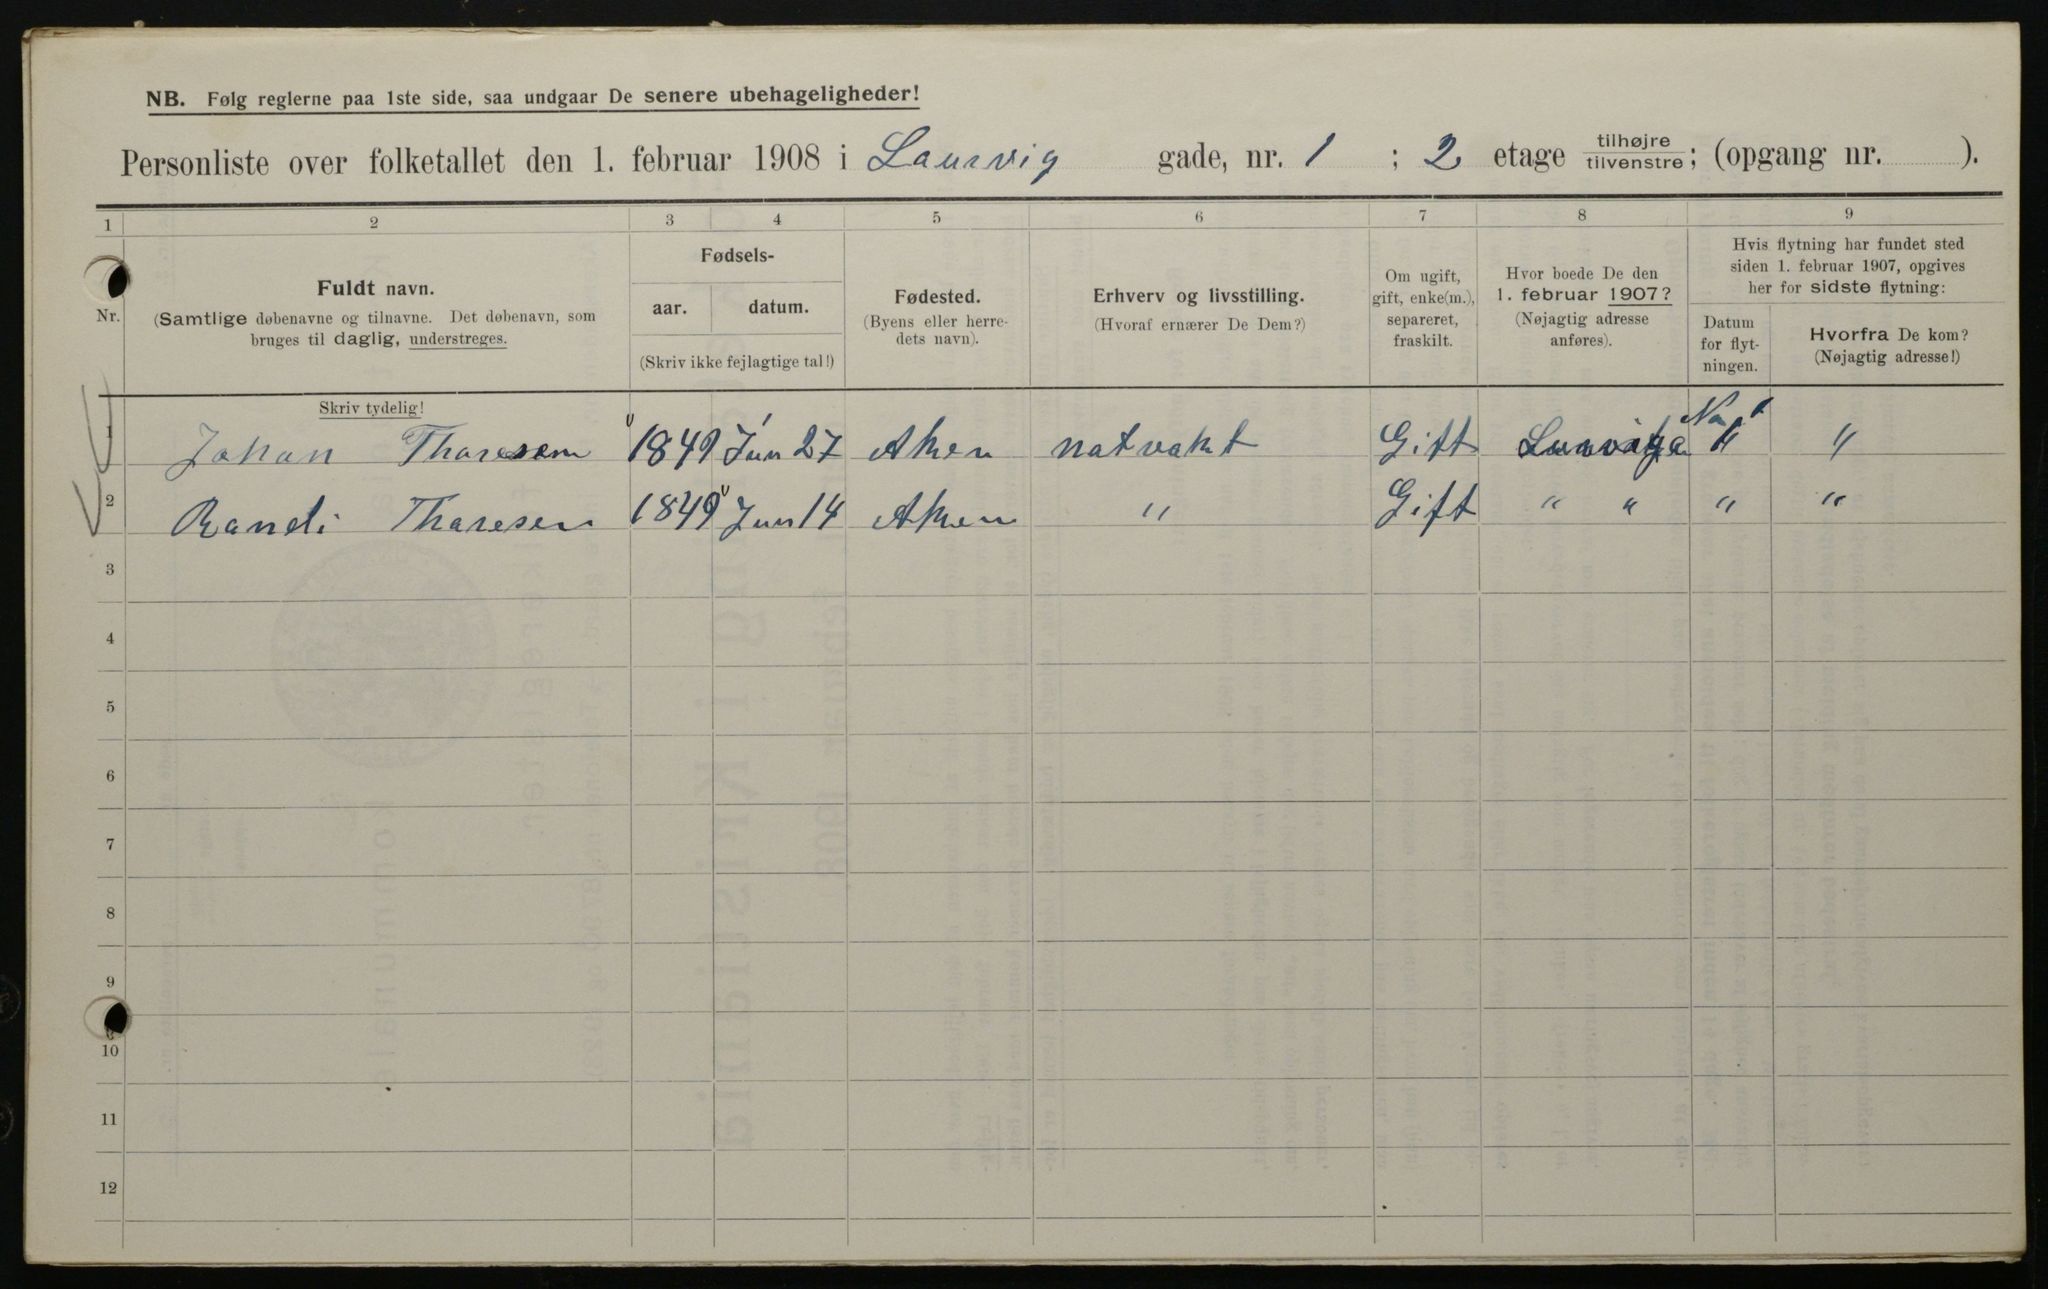 NB. Følg reglerne paa 1ste side, saa undgaar De senere ubehageligheder!
Personliste over folketallet den 1. februar 1908 i Laurvig gade, nr. 1 ; 2 etage tilhøjre tilvenstre; (opgang nr. ).
1 2 3 4 5 6 7 8 9
Nr.
Fuldt navn.
(Samtlige døbenavne og tilnavne. Det døbenavn, som
bruges til daglig, understreges.
Skriv tydelig!
Fødsels-
aar. datum.
(Skriv ikke fejlagtige tal!)
Fødested.
(Byens eller herre-
dets navn).
Erhverv og livsstilling.
(Hvoraf ernærer De Dem?)
Om ugift,
gift, enke(m.),
separeret,
fraskilt.
Hvor boede De den
1. februar 1907?
(Nøjagtig adresse
anføres).
Hvis flytning har fundet sted
siden 1. februar 1907, opgives
her for sidste flytning:
Datum
for flyt-
ningen.
Hvorfra De kom?
(Nøjagtig adresse!)
1 Johan Tharesen 1849 Jun 27 Aker natvakt Gift " "
2 Randi Tharesen 1849 Jun 14 Aker " Gift " " " "
3
4
5
6
7
8
9
10
11
12